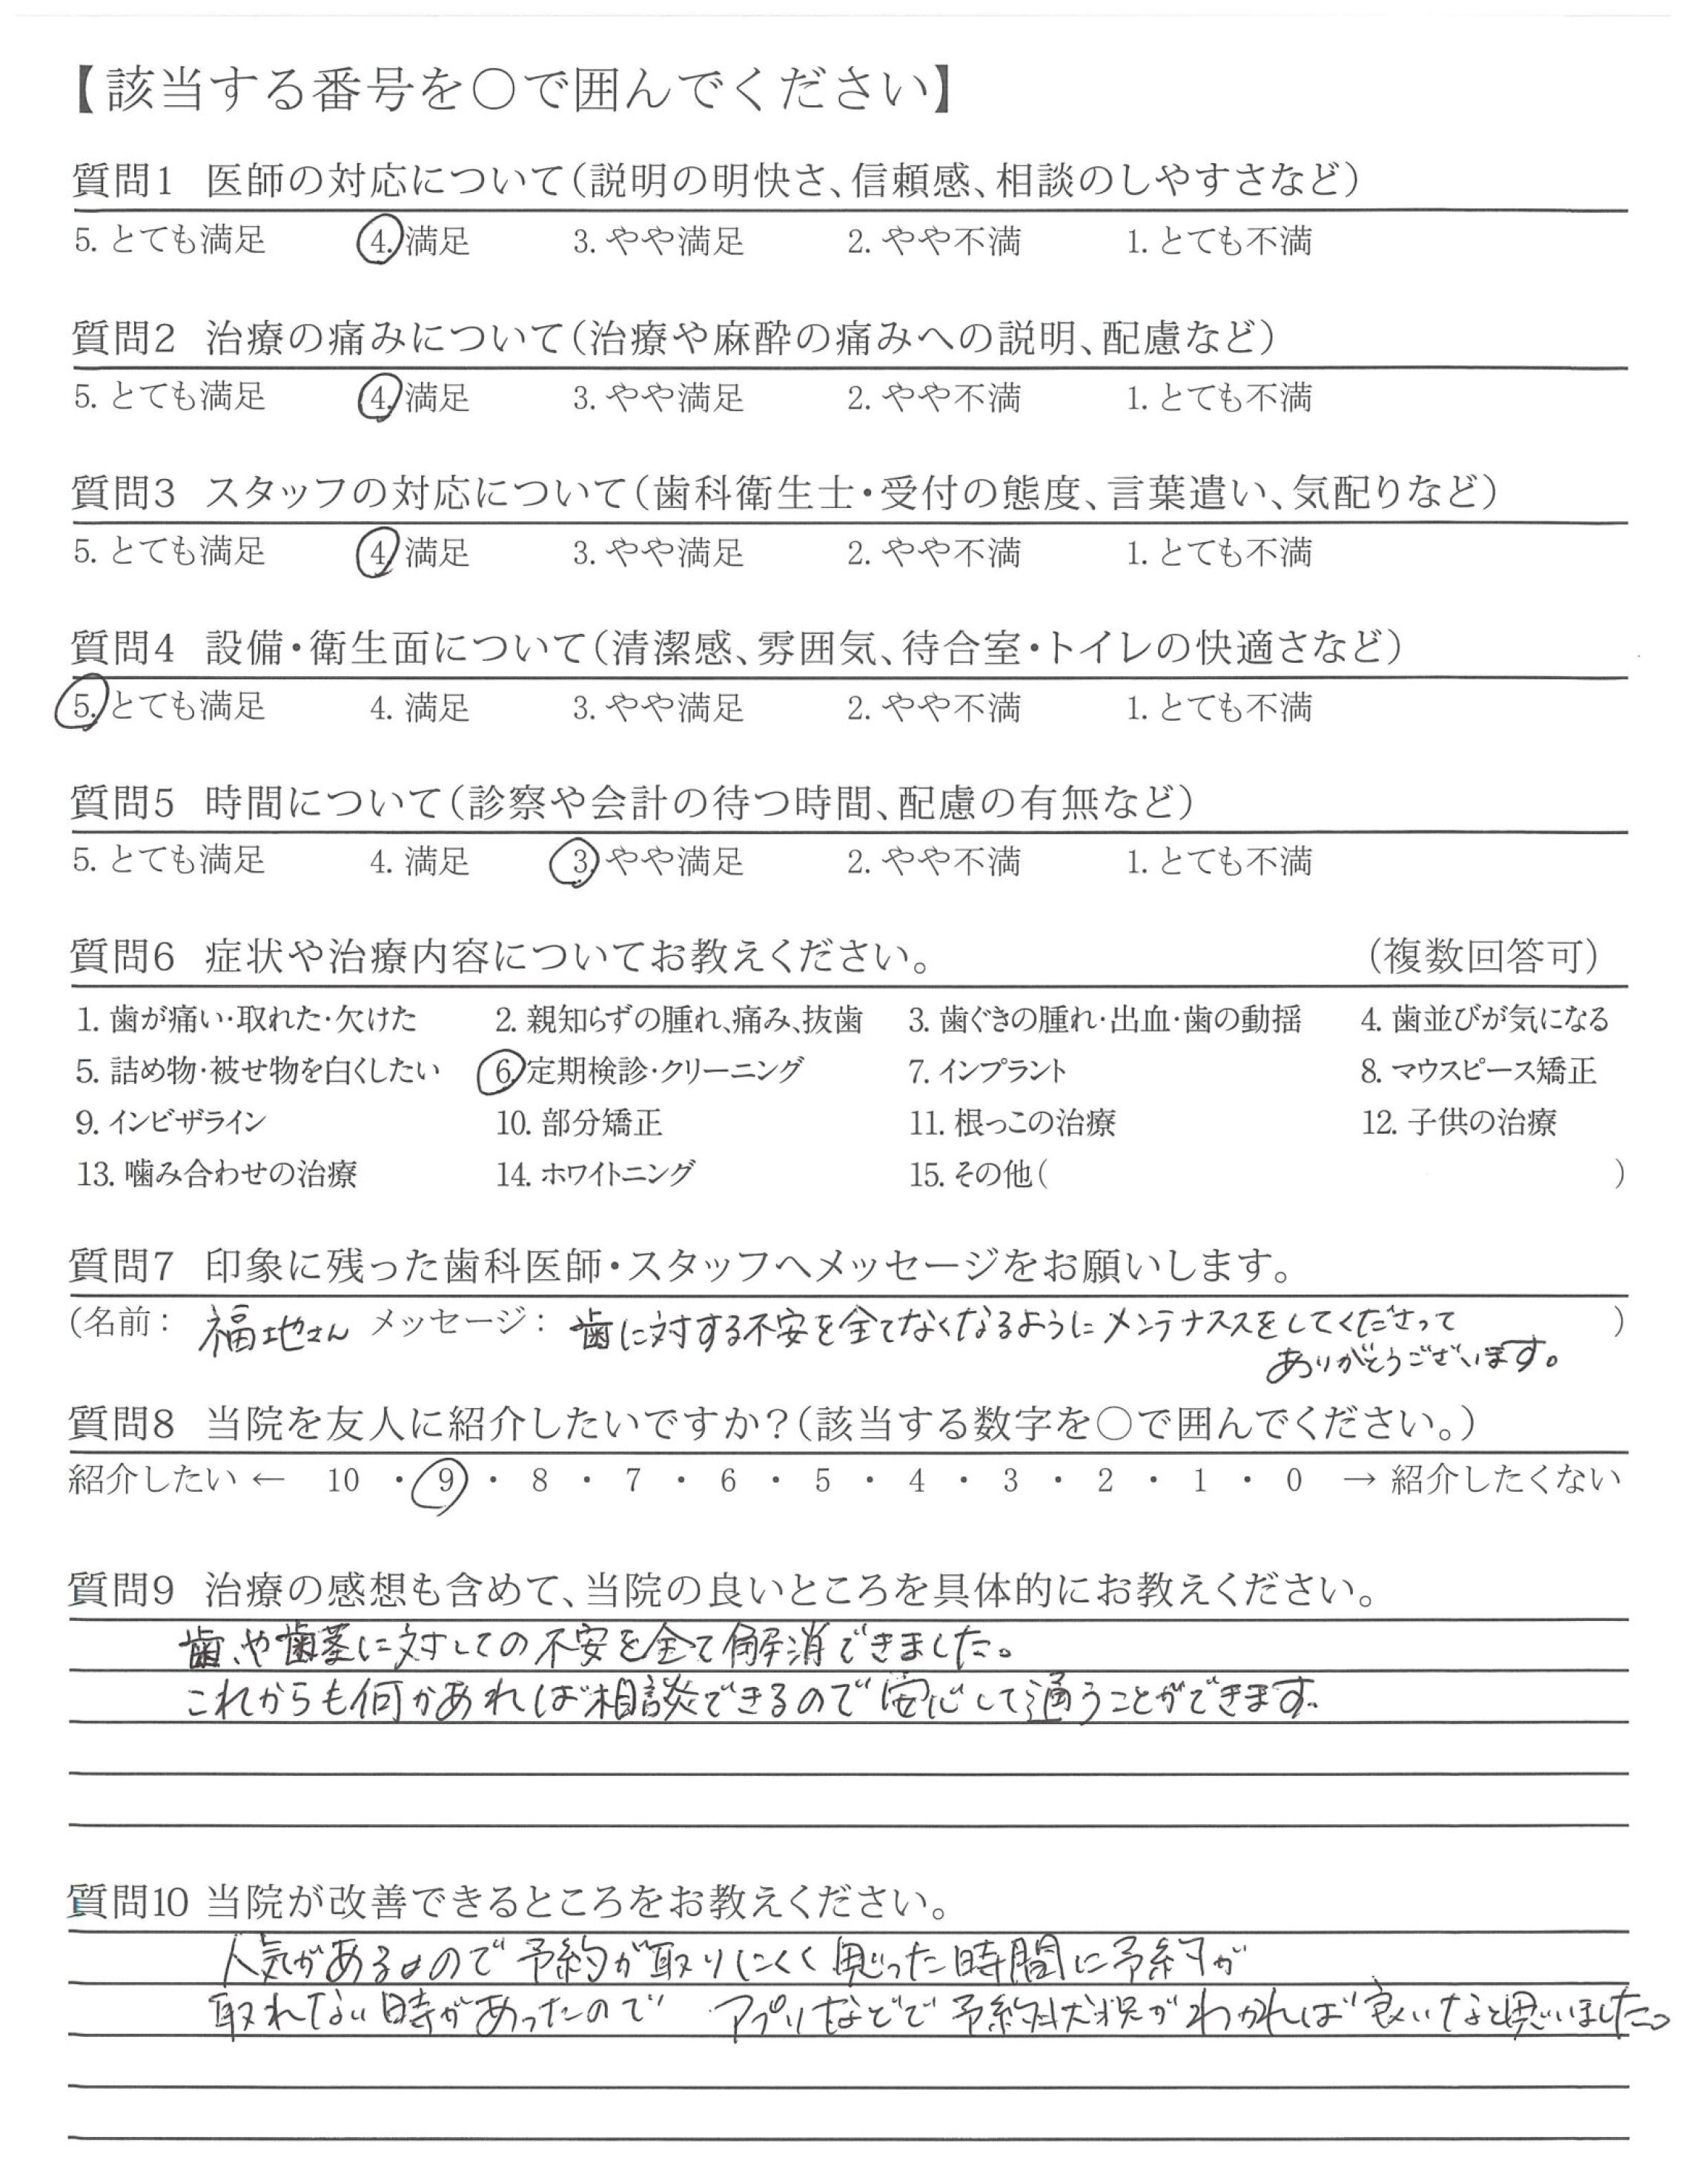 【該当する番号を○で囲んでください】
質問1 医師の対応について(説明の明快さ、信頼感、相談のしやすさなど)
5. とても満足 4. 満足 3. やや満足 2. やや不満 1. とても不満
質問2 治療の痛みについて(治療や麻酔の痛みへの説明、配慮など)
5. とても満足 4. 満足 3. やや満足 2. やや不満 1. とても不満
質問3 スタッフの対応について(歯科衛生士・受付の態度、言葉遣い、気配りなど)
5. とても満足 4. 満足 3. やや満足 2. やや不満 1. とても不満
質問4 設備・衛生面について(清潔感、雰囲気、待合室・トイレの快適さなど)
5. とても満足 4. 満足 3. やや満足 2. やや不満 1. とても不満
質問5 時間について(診察や会計の待つ時間、配慮の有無など)
5. とても満足 4. 満足 3. やや満足 2. やや不満 1. とても不満
質問6 症状や治療内容についてお教えください。 (複数回答可)
1. 歯が痛い・取れた・欠けた 2. 親知らずの腫れ、痛み、抜歯 3. 歯ぐきの腫れ・出血・歯の動揺 4. 歯並びが気になる
5. 詰め物・被せ物を白くしたい 6. 定期検診・クリーニング 7. インプラント 8. マウスピース矯正
9. インビザライン 10. 部分矯正 11. 根っこの治療 12. 子供の治療
13. 噛み合わせの治療 14. ホワイトニング 15. その他( )
質問7 印象に残った歯科医師・スタッフへメッセージをお願いします。
(名前: 福地さん メッセージ: 歯に対する不安を全てなくなるようにメンテナススをしてくださって )
ありがとうございます。
質問8 当院を友人に紹介したいですか?(該当する数字を○で囲んでください。)
紹介したい ← 10 ・ 9 ・ 8 ・ 7 ・ 6 ・ 5 ・ 4 ・ 3 ・ 2 ・ 1 ・ 0 → 紹介したくない
質問9 治療の感想も含めて、当院の良いところを具体的にお教えください。
歯や歯茎に対しての不安を全て解消できました。
これからも何かあれば相談できるので安心して通うことができます。
質問10 当院が改善できるところをお教えください。
人気があるので予約が取りにくく思った時間に予約が
取れない時があったので アプリなどで予約状況がわかれば良いなと思いました。